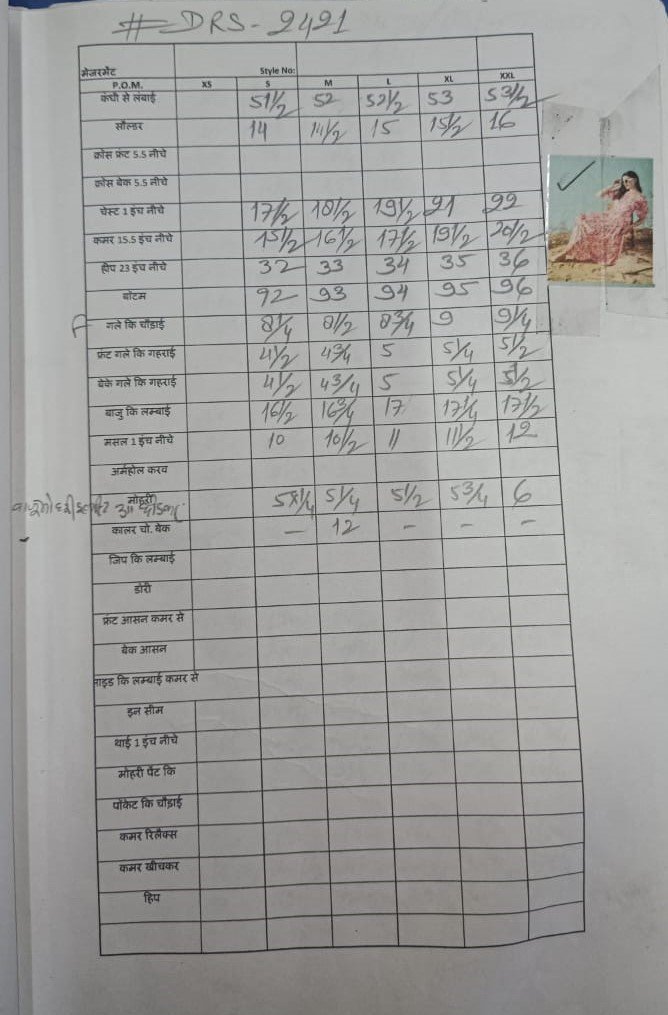 # DRS-2421
मेजरमेंट Style No:
P.O.M. XS S M L XL XXL
कंधी से लंबाई 51 1/2 52 52 1/2 53 53 1/2
सोल्डर 14 14 1/2 15 15 1/2 16
क्रोस फ्रंट 5.5 नीचे
क्रोस बेक 5.5 नीचे
चेस्ट 1 इंच नीचे 17 1/2 18 1/2 19 1/2 21 22
कमर 15.5 इंच नीचे 15 1/2 16 1/2 17 1/2 19 1/2 20 1/2
हीप 23 इंच नीचे 32 33 34 35 36
बोटम 92 93 94 95 96
गले कि चौड़ाई 8 1/4 8 1/2 8 3/4 9 9 1/4
फ्रंट गले कि गहराई 4 1/2 4 3/4 5 5 1/4 5 1/2
बेके गले कि गहराई 4 1/2 4 3/4 5 5 1/4 5 1/2
बाजु कि लम्बाई 16 1/2 16 3/4 17 17 1/4 17 1/2
मसल 1 इंच नीचे 10 10 1/2 11 11 1/2 12
अर्महोल करव
मोहरी 5 1/4 5 1/2 5 3/4 6
कालर चो. बेक - 12 - - -
जिप कि लम्बाई
डोरी
फ्रंट आसन कमर से
बेक आसन
साइड कि लम्बाई कमर से
इन सीम
थाई 1 इंच नीचे
मोहरी पेंट कि
पॉकेट कि चौड़ाई
कमर रिलैक्स
कमर खीचकर
हिप